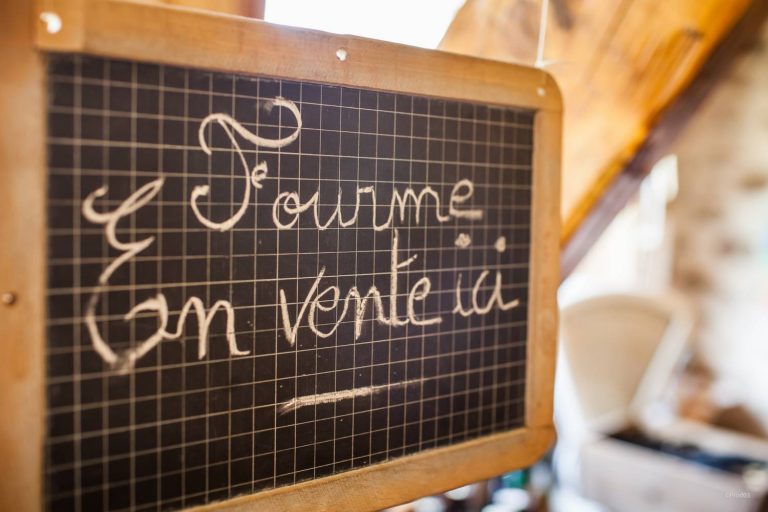 Fourme
En vente ici